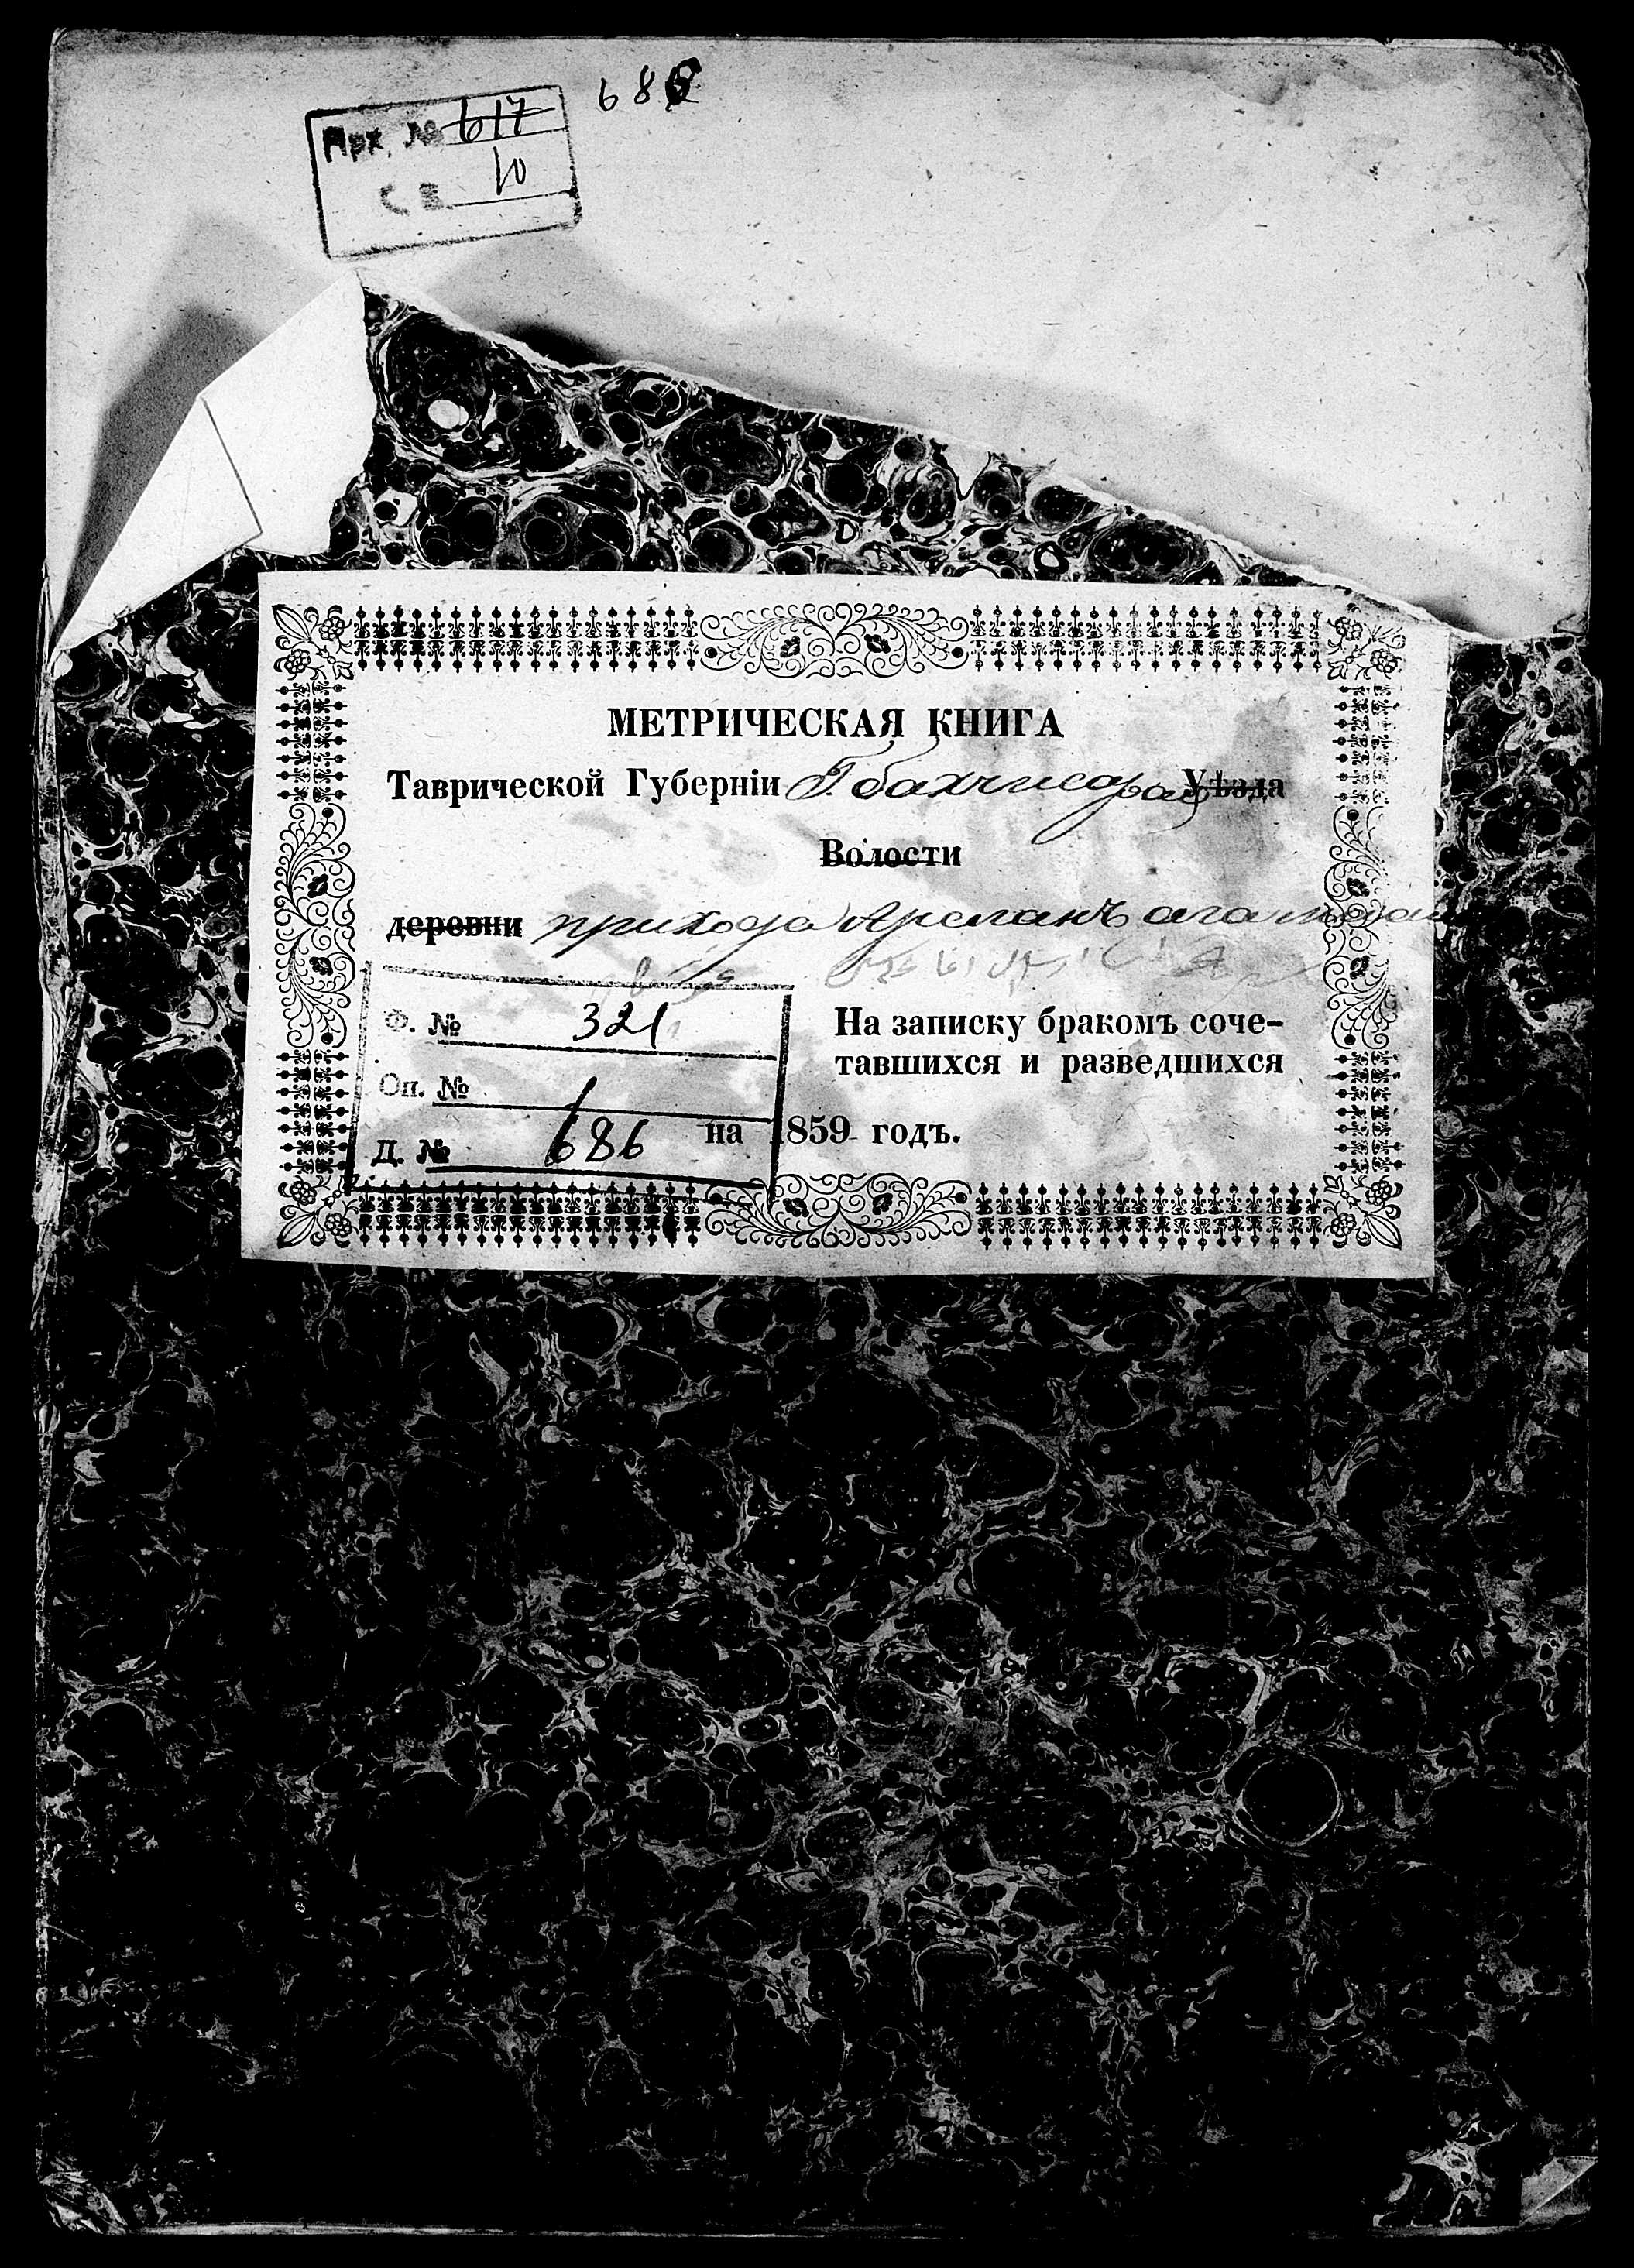 686
Арх. № 617
СВ. 10
МЕТРИЧЕСКАЯ КНИГА
Таврической Губерніи Г. бахчисарая Уѣзда
Волости
деревни прихода Арсланъ ага
Ф. № 321
На записку бракомъ соче-
тавшихся и разведшихся
Оп. № 1
Д. № 686
на 1859 годъ.